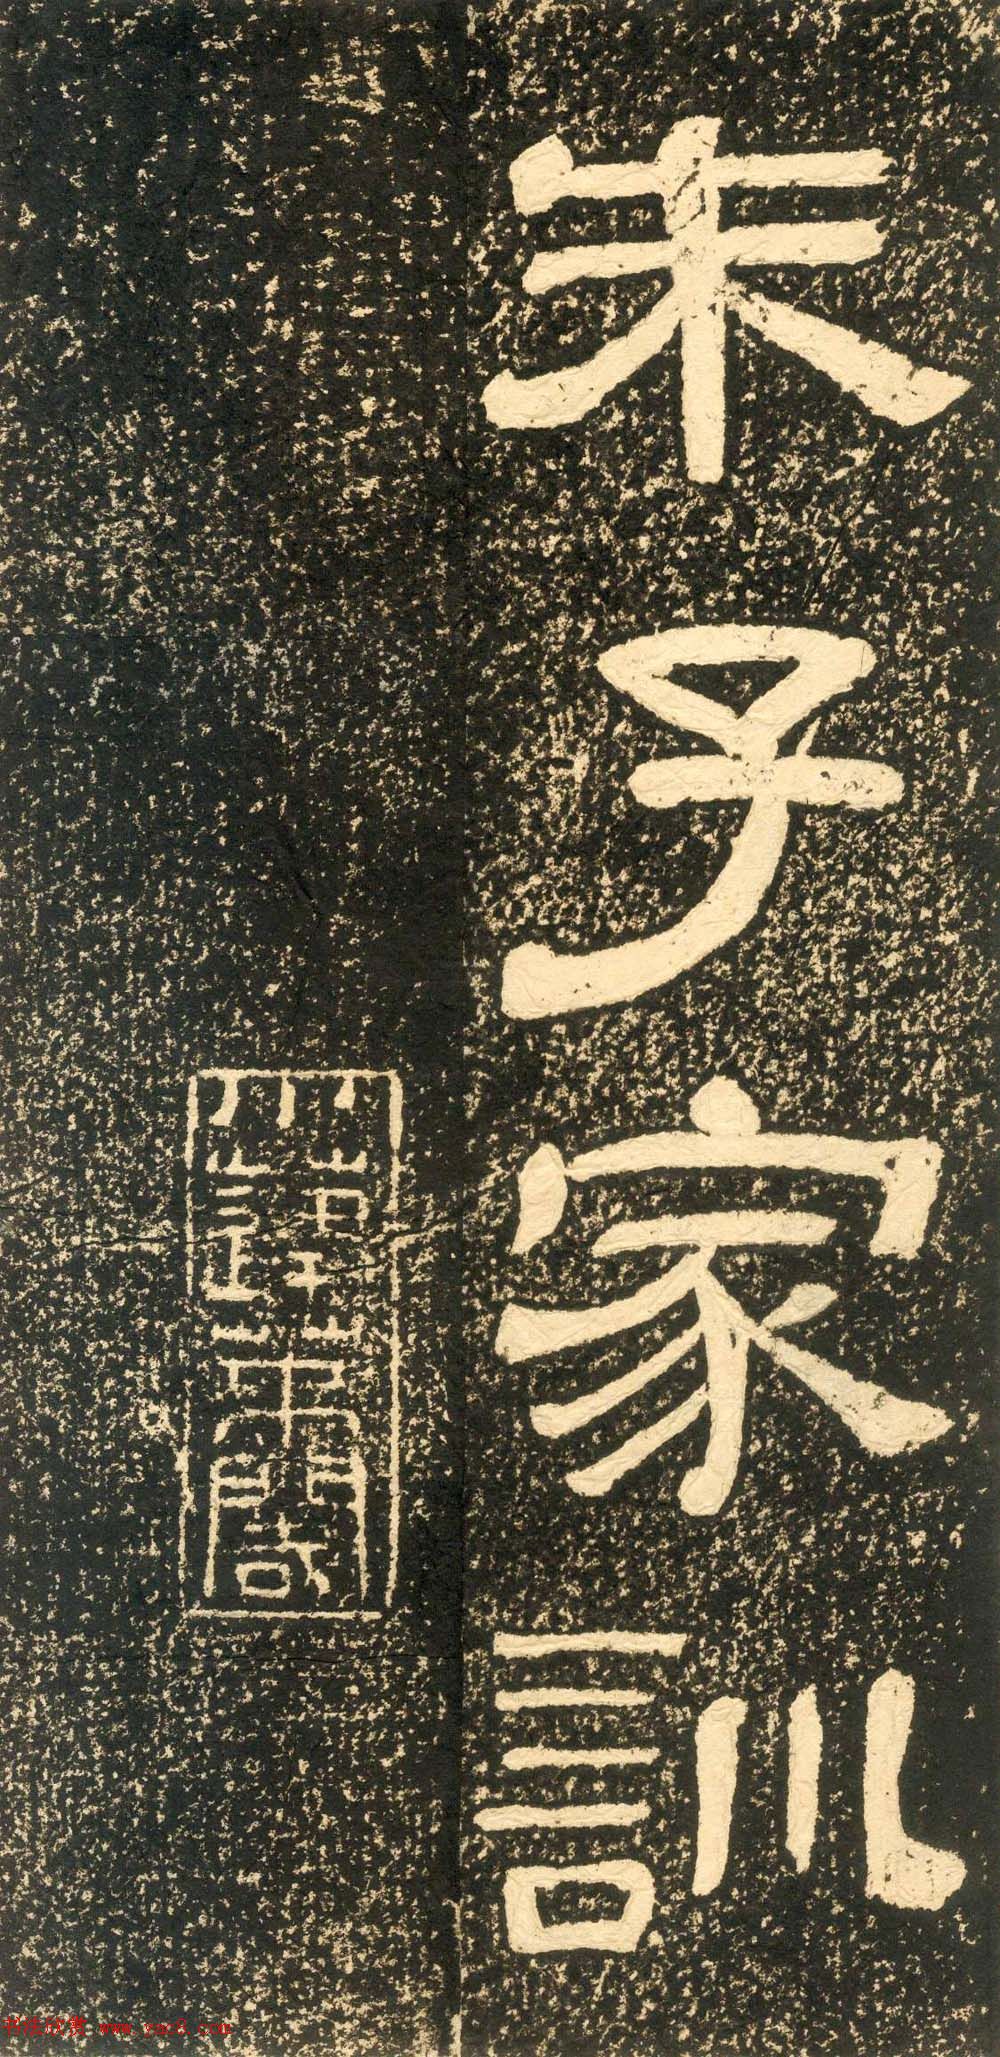 朱子家訓
书法欣赏 www.yac8.com